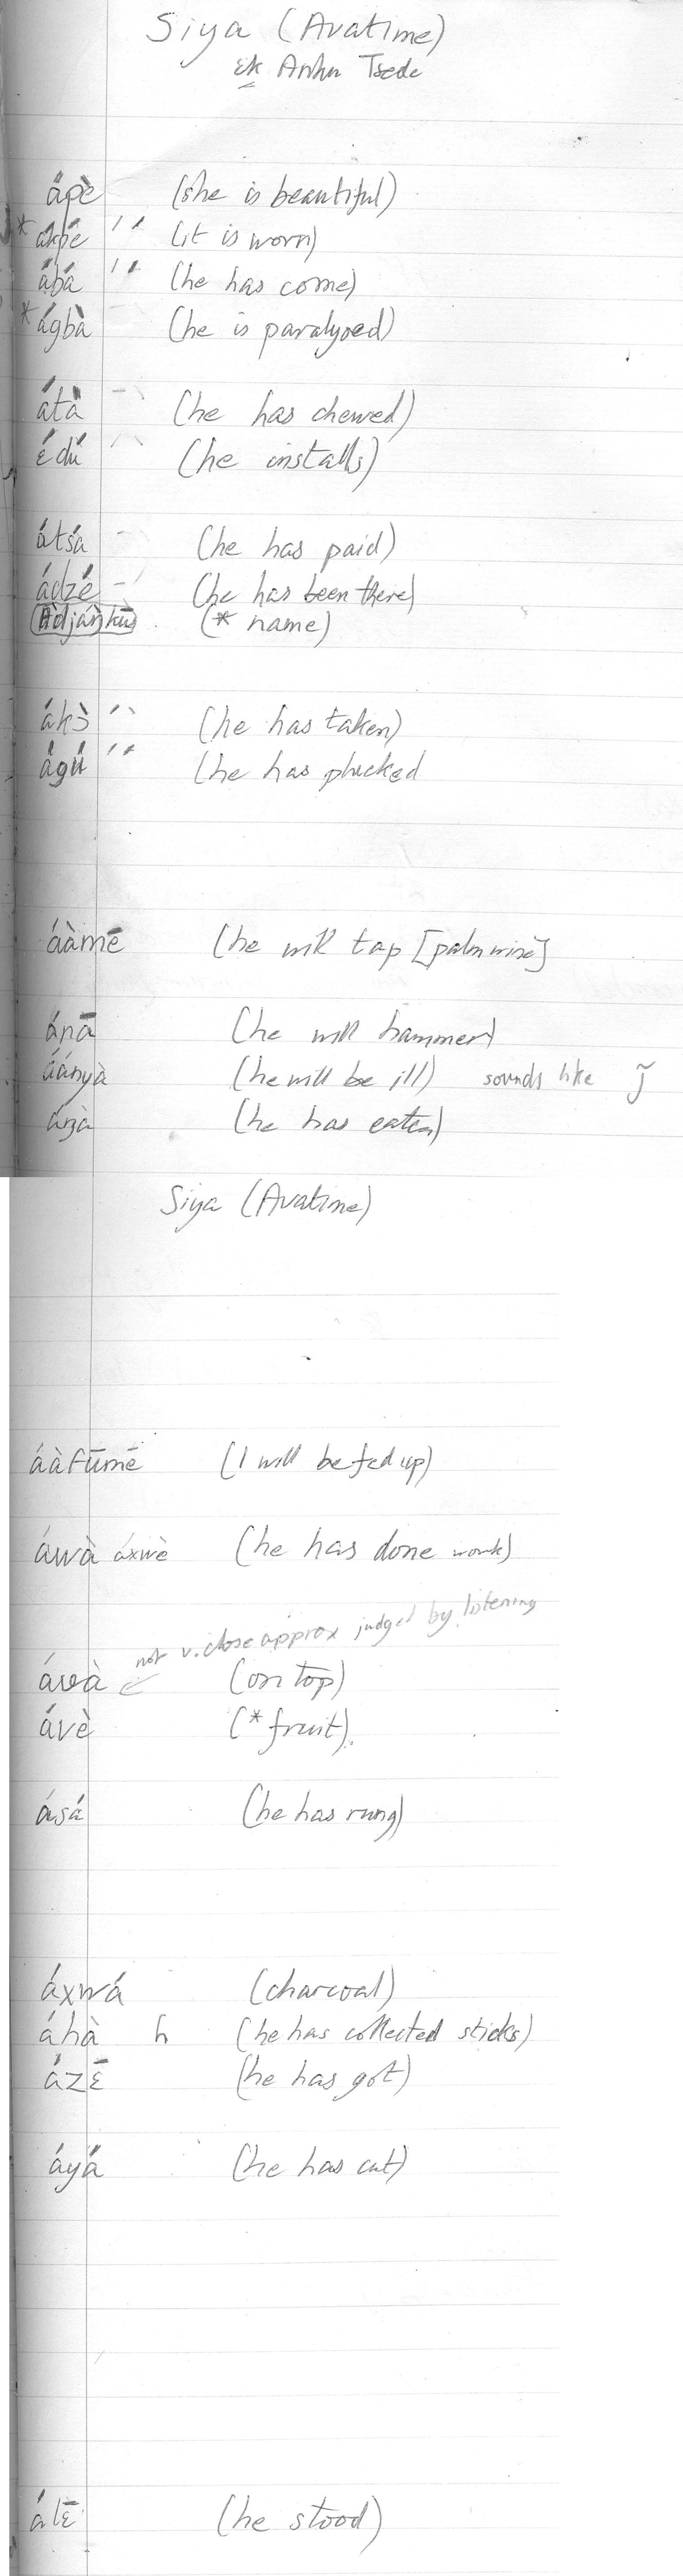 Siya (Avatime)
Tsede
ápè (she is beautiful)
* akpé ´ ´ (it is worn)
ábá ´ ´ (he has come)
* ágbà (he is paralyzed)
átà ¯ ` (he has chewed)
édú (he installs)
átsá (he has paid)
ádzé ¯ ´ (he has been there)
(* name)
ákɔ̀ ´ ` (he has taken)
ágú ´ ´ (he has plucked
áàmē (he will tap [palm wine]
ánā (he will hammer)
áányà (he will be ill) sounds like j̃
áŋà (he has eaten)
Siya (Avatime)
áàfūmē (I will be fed up)
áwà áxwè (he has done work)
not v. close approx judged by listening
áʋà (on top)
ávè (* fruit).
ásá (he has rung)
áxwá (charcoal)
áhà ɦ (he has collected sticks)
ázɛ̄ (he has got)
áyá (he has cut)
álɛ̄ (he stood)